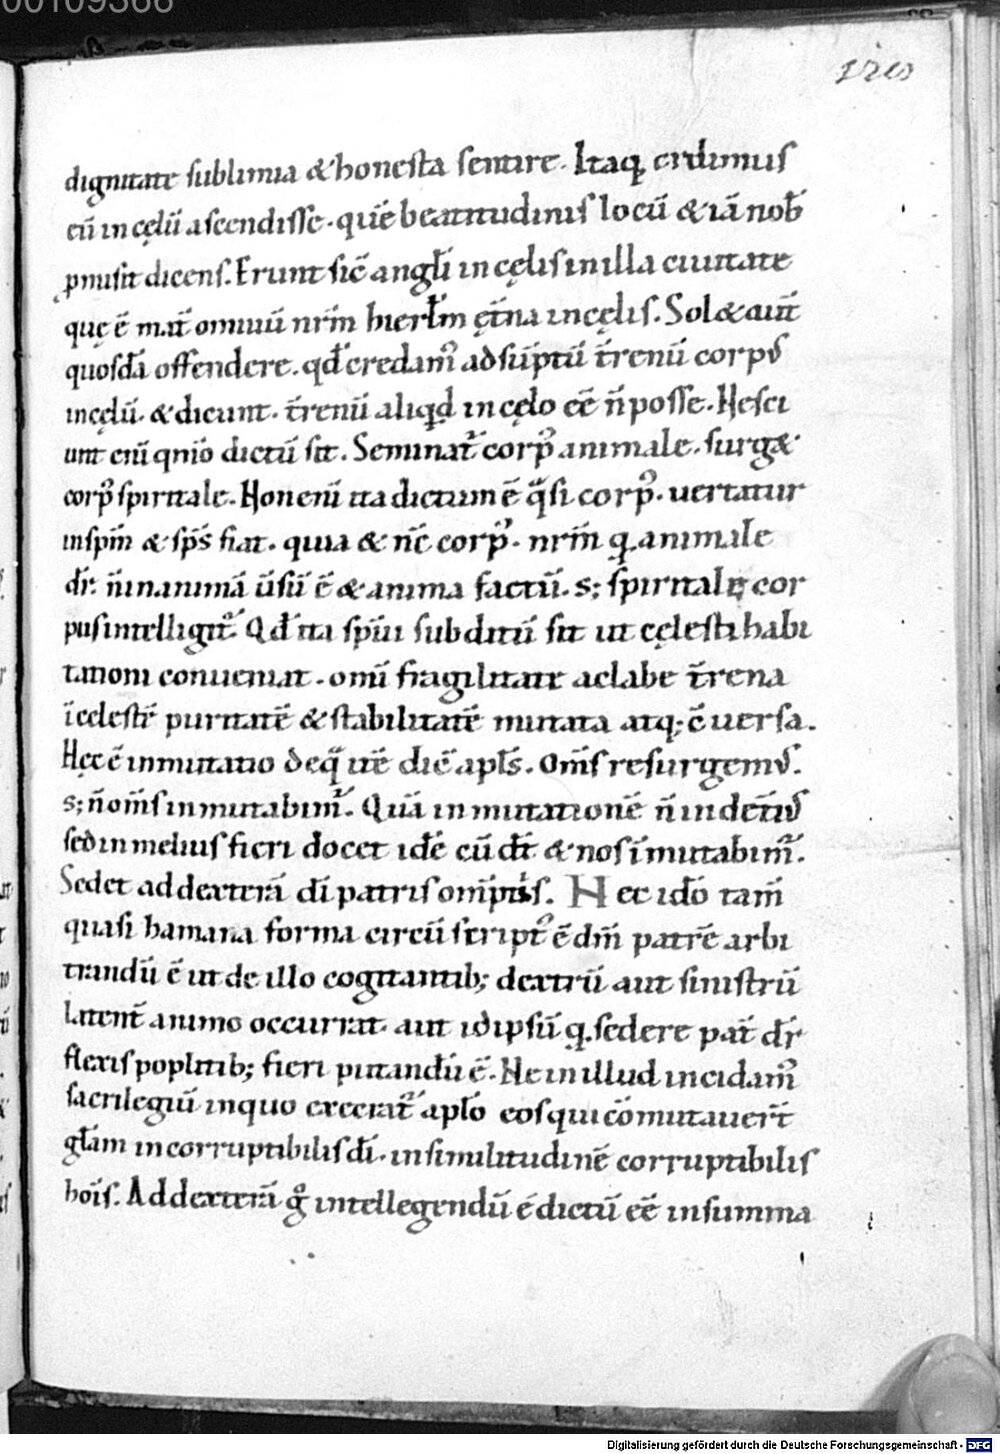 00109366
dignitate sublimia & honesta sentire. Itaq; crdimus
cū in cęlū ascendisse. quē beatitudinis locū & iā nob̄
ꝓmisit dicens. Erunt sic̄ angl̄i in cęlis in illa ciuitate
quę ē mat̄ omniū nr̄m hierl̄m ęt̄na in cęlis. Sol& aūt
quosdā offendere. qđ credam᷒ adsūptū t̄renū corp᷒
in cęlū. & dicunt. t̄renū aliqd in cęlo eē n̄ posse. Nesci
unt enī qm̄o dictū sit. Seminat᷑ corp᷒ animale. surg&
corp᷒ spiritale. Non enī ita dictum ē q̄si corp᷒. uertatur
in spm̄ & sps̄ fiat. quia & nc̄ corp᷒. nr̄m q animale
dr̄. n̄ in animā ūsū ē & anima factū. s; spiritalę cor
pus intelligit᷑. Qđ ita spūi subditū sit ut cęlesti habi
tationi conueniat. omī fragilitate ac labe t̄rena
ī celestē puritatē & stabilitatē mutata atq; cū uersa.
Hęc ē inmutatio de q̄ itē dic̄ apls̄. Om̄s resurgem᷒.
s; n̄ om̄s inmutabim᷒. Quā inmutationē n̄ in deti᷒
sed in melius fieri docet idē cū dt̄ & nos īmutabim᷒.
Sedet ad dexterā dī patris omīptis̄. Nec idō tam̄
quasi hamana forma circū script᷒ ē dm̄ patrē arbi
trandū ē ut de illo cogitantib; dextrū aut sinistrū
latent᷒ animo occurrat. aut id ipsū q sedere pat̄ dr̄
flexis poplitib; fieri putandū ē. Ne in illud incidam᷒
sacrilegiū in quo execrat᷑ aplō eos qui cōmutauer̄t
gl̄am incorruptibilis dī. in similitudinē corruptibilis
hoīs. Ad dexterā g̊ intellegendū ē dictū eē in summa
Digitalisierung gefördert durch die Deutsche Forschungsgemeinschaft - DFG